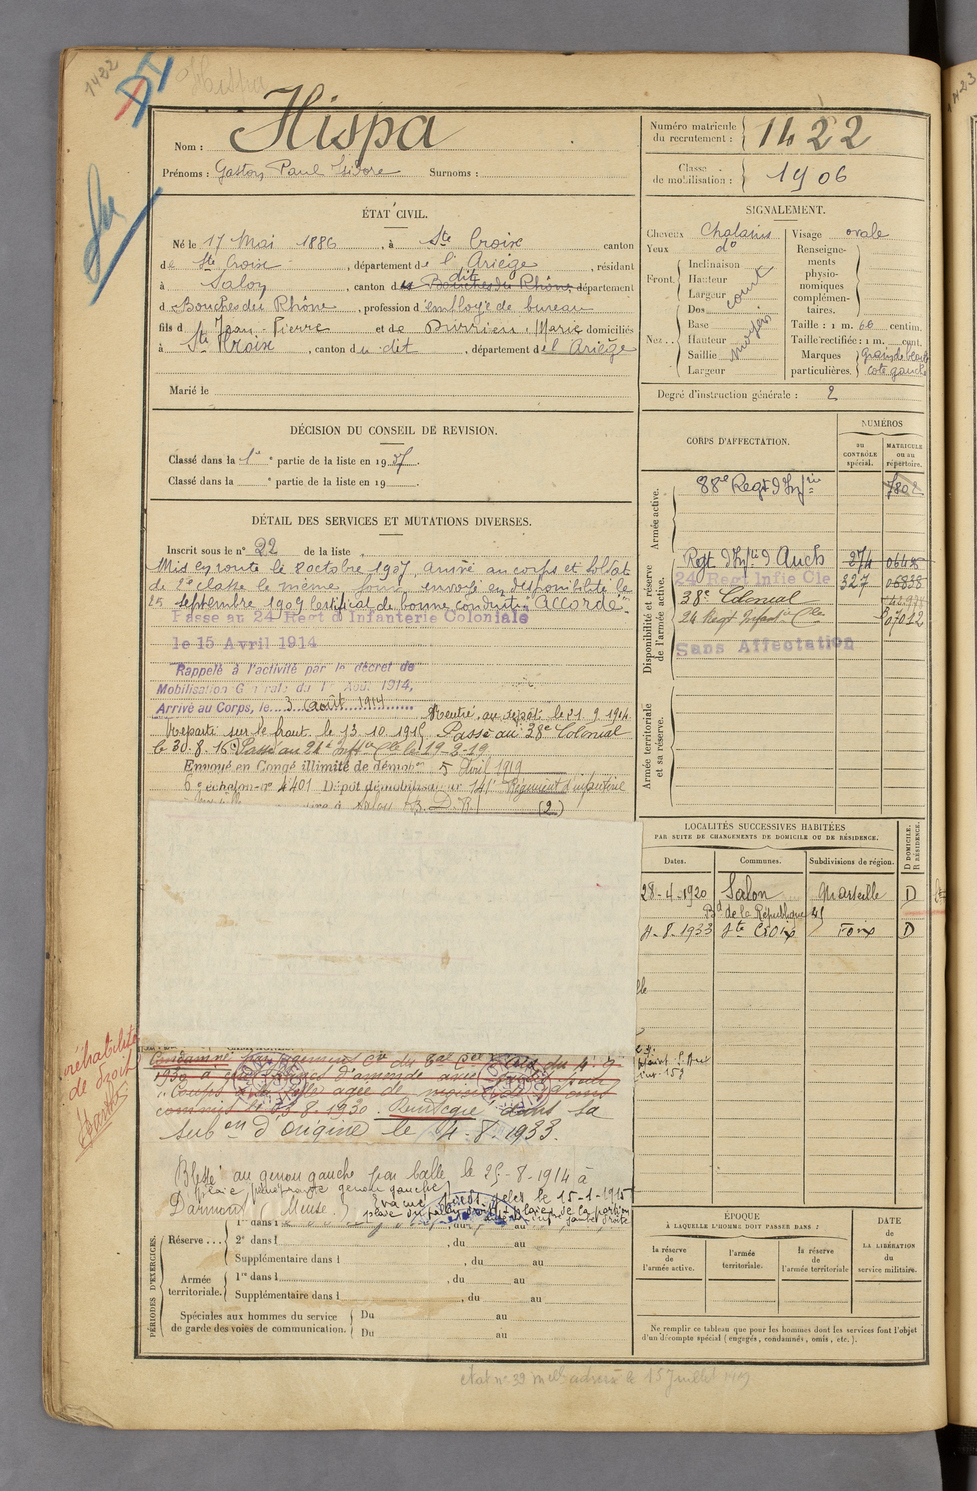 1422
Hispa
Nom : Hispa
Prénoms : Gaston Paul Isidore Surnoms :
Numéro matricule du recrutement : 1422
Classe de mobilisation : 1906
ÉTAT CIVIL.
Né le 17 Mai 1886, à Ste Croix canton
de Ste Croix, département de l'Ariège, résidant
à Salon, canton du dit Bouches du Rhône département
d Bouches du Rhône, profession d'employé de bureau
fils d Jean-Pierre et de Durrieu, Marie domiciliés
à Ste Croix, canton du dit, département de l'Ariège
Marié le
SIGNALEMENT.
Cheveux Chatains
Yeux do
Front Inclinaison
Hauteur
Largeur
court
Nez Dos
Base
Hauteur
Saillie
Largeur
moyen
Visage ovale
Renseignements physionomiques complémentaires.
Taille : 1 m. 60 centim.
Taille rectifiée : 1 m. cent.
Marques particulières. Grain de beauté coté gauche
Degré d'instruction générale : 2
DÉCISION DU CONSEIL DE REVISION.
Classé dans la 1e partie de la liste en 1907.
Classé dans la e partie de la liste en 19
DÉTAIL DES SERVICES ET MUTATIONS DIVERSES.
Inscrit sous le n° 22 de la liste
Mis en route le 8 octobre 1907, arrivé au corps et soldat
de 2e classe le même jour, envoyé en disponibilité le
25 septembre 1909 Certificat de bonne conduite Accordé.
Passé au 24 Regt d'Infanterie Coloniale
le 15 Avril 1914
Rappelé à l'activité par le décret de
Mobilisation Générale du 1er Août 1914,
Arrivé au Corps, le 3 août 1914
Rentré au dépôt le 21.9.1914
Reparti sur le front le 13.10.1915 Passé au 38e Colonial
le 30.8.16 Passé au 24e Inftie Cle le 19-2-19
Envoyé en Congé illimité de démobon 5 Avril 1919
6e échelon-no 4401 Dépôt démobilisateur 141e Régiment d'infanterie
à Salon B.D.R. (2)
CORPS D'AFFECTATION.
NUMÉROS
au CONTRÔLE spécial.
MATRICULE ou au répertoire.
Armée active.
88e Regt d'Infrie 7802
Disponibilité et réserve de l'armée active.
Regt d'Infie d'Auch 274
24 Regt Infie Cle 327 06838
38e Colonial
24 Regt Infant Cle 07012
Sans Affectation
Armée territoriale et sa réserve.
LOCALITÉS SUCCESSIVES HABITÉES
PAR SUITE DE CHANGEMENTS DE DOMICILE OU DE RÉSIDENCE.
Dates. Communes. Subdivisions de région. D DOMICILE. R RÉSIDENCE.
28-4-1920 Salon Marseille D
Bd de la République 45
4-8-1933 Ste Croix Foix D
réhabilité
de droit
Condamné par jugement du
1930 à francs d'amende avec
coups à
commis le 23.8.1930. Réintégré dans sa
subon d'origine le 4-8-1933.
Blessé au genou gauche par balle le 25-8-1914 à
plaie pénétrante genou gauche
Darmont (Meuse.) Evacué pieds gelés le 15-1-1915
PÉRIODES D'EXERCICES.
Réserve... 1re dans l , du au
2e dans l , du au
Supplémentaire dans l , du au
Armée territoriale. 1re dans l , du au
Supplémentaire dans l , du au
Spéciales aux hommes du service de garde des voies de communication. Du au
Du au
ÉPOQUE
À LAQUELLE L'HOMME DOIT PASSER DANS :
la réserve de l'armée active.
l'armée territoriale.
la réserve de l'armée territoriale
DATE
de
LA LIBÉRATION
du
service militaire.
Ne remplir ce tableau que pour les hommes dont les services font l'objet
d'un décompte spécial (engagés, condamnés, omis, etc.).
état no 39 adressé le 15 Juillet